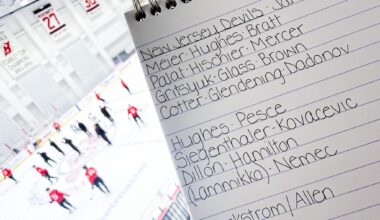 27 3
New Jersey Devils
Meier-Hughes-Bratt
Palat-Hischier-Mercer
Gritsyuk-Glass-Brown
Cotter-Glendening-Dadonov
Hughes-Pesce
Siegenthaler-Kovacevic
Dillon-Hamilton
(Lammikko)-Nemec
/Allen